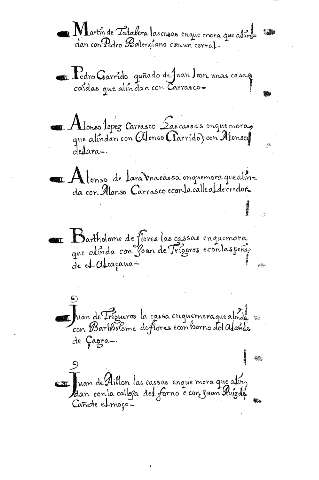 Martin de Talabera las casas en que mora que alin
dan con Pedro Balenziano con un corral.
Pedro Garrido cuñado de Juan Leon unas casas
caidas que alindan con Carrasco
Alonso lopez Carrasco las casas en que mora
que alindan con Alonso Garrido, y con Alonso
de Lara
Alonso de Lara una cassa en que mora que alin-
da con Alonso Carrasco e con la calle al derredor
Bartholome de flores las cassas en que mora
que alinda con Joan de Trigueros e con las
de el Alcaçaua
Juan de Trigueros la cassa en que mora que alinda
con Bartholome de flores e con horno del Alcaide
de
Juan de Aillon las cassas en que mora que alin
dan con la calleja del forno e con Juan Ruiz de
Cañete el moço